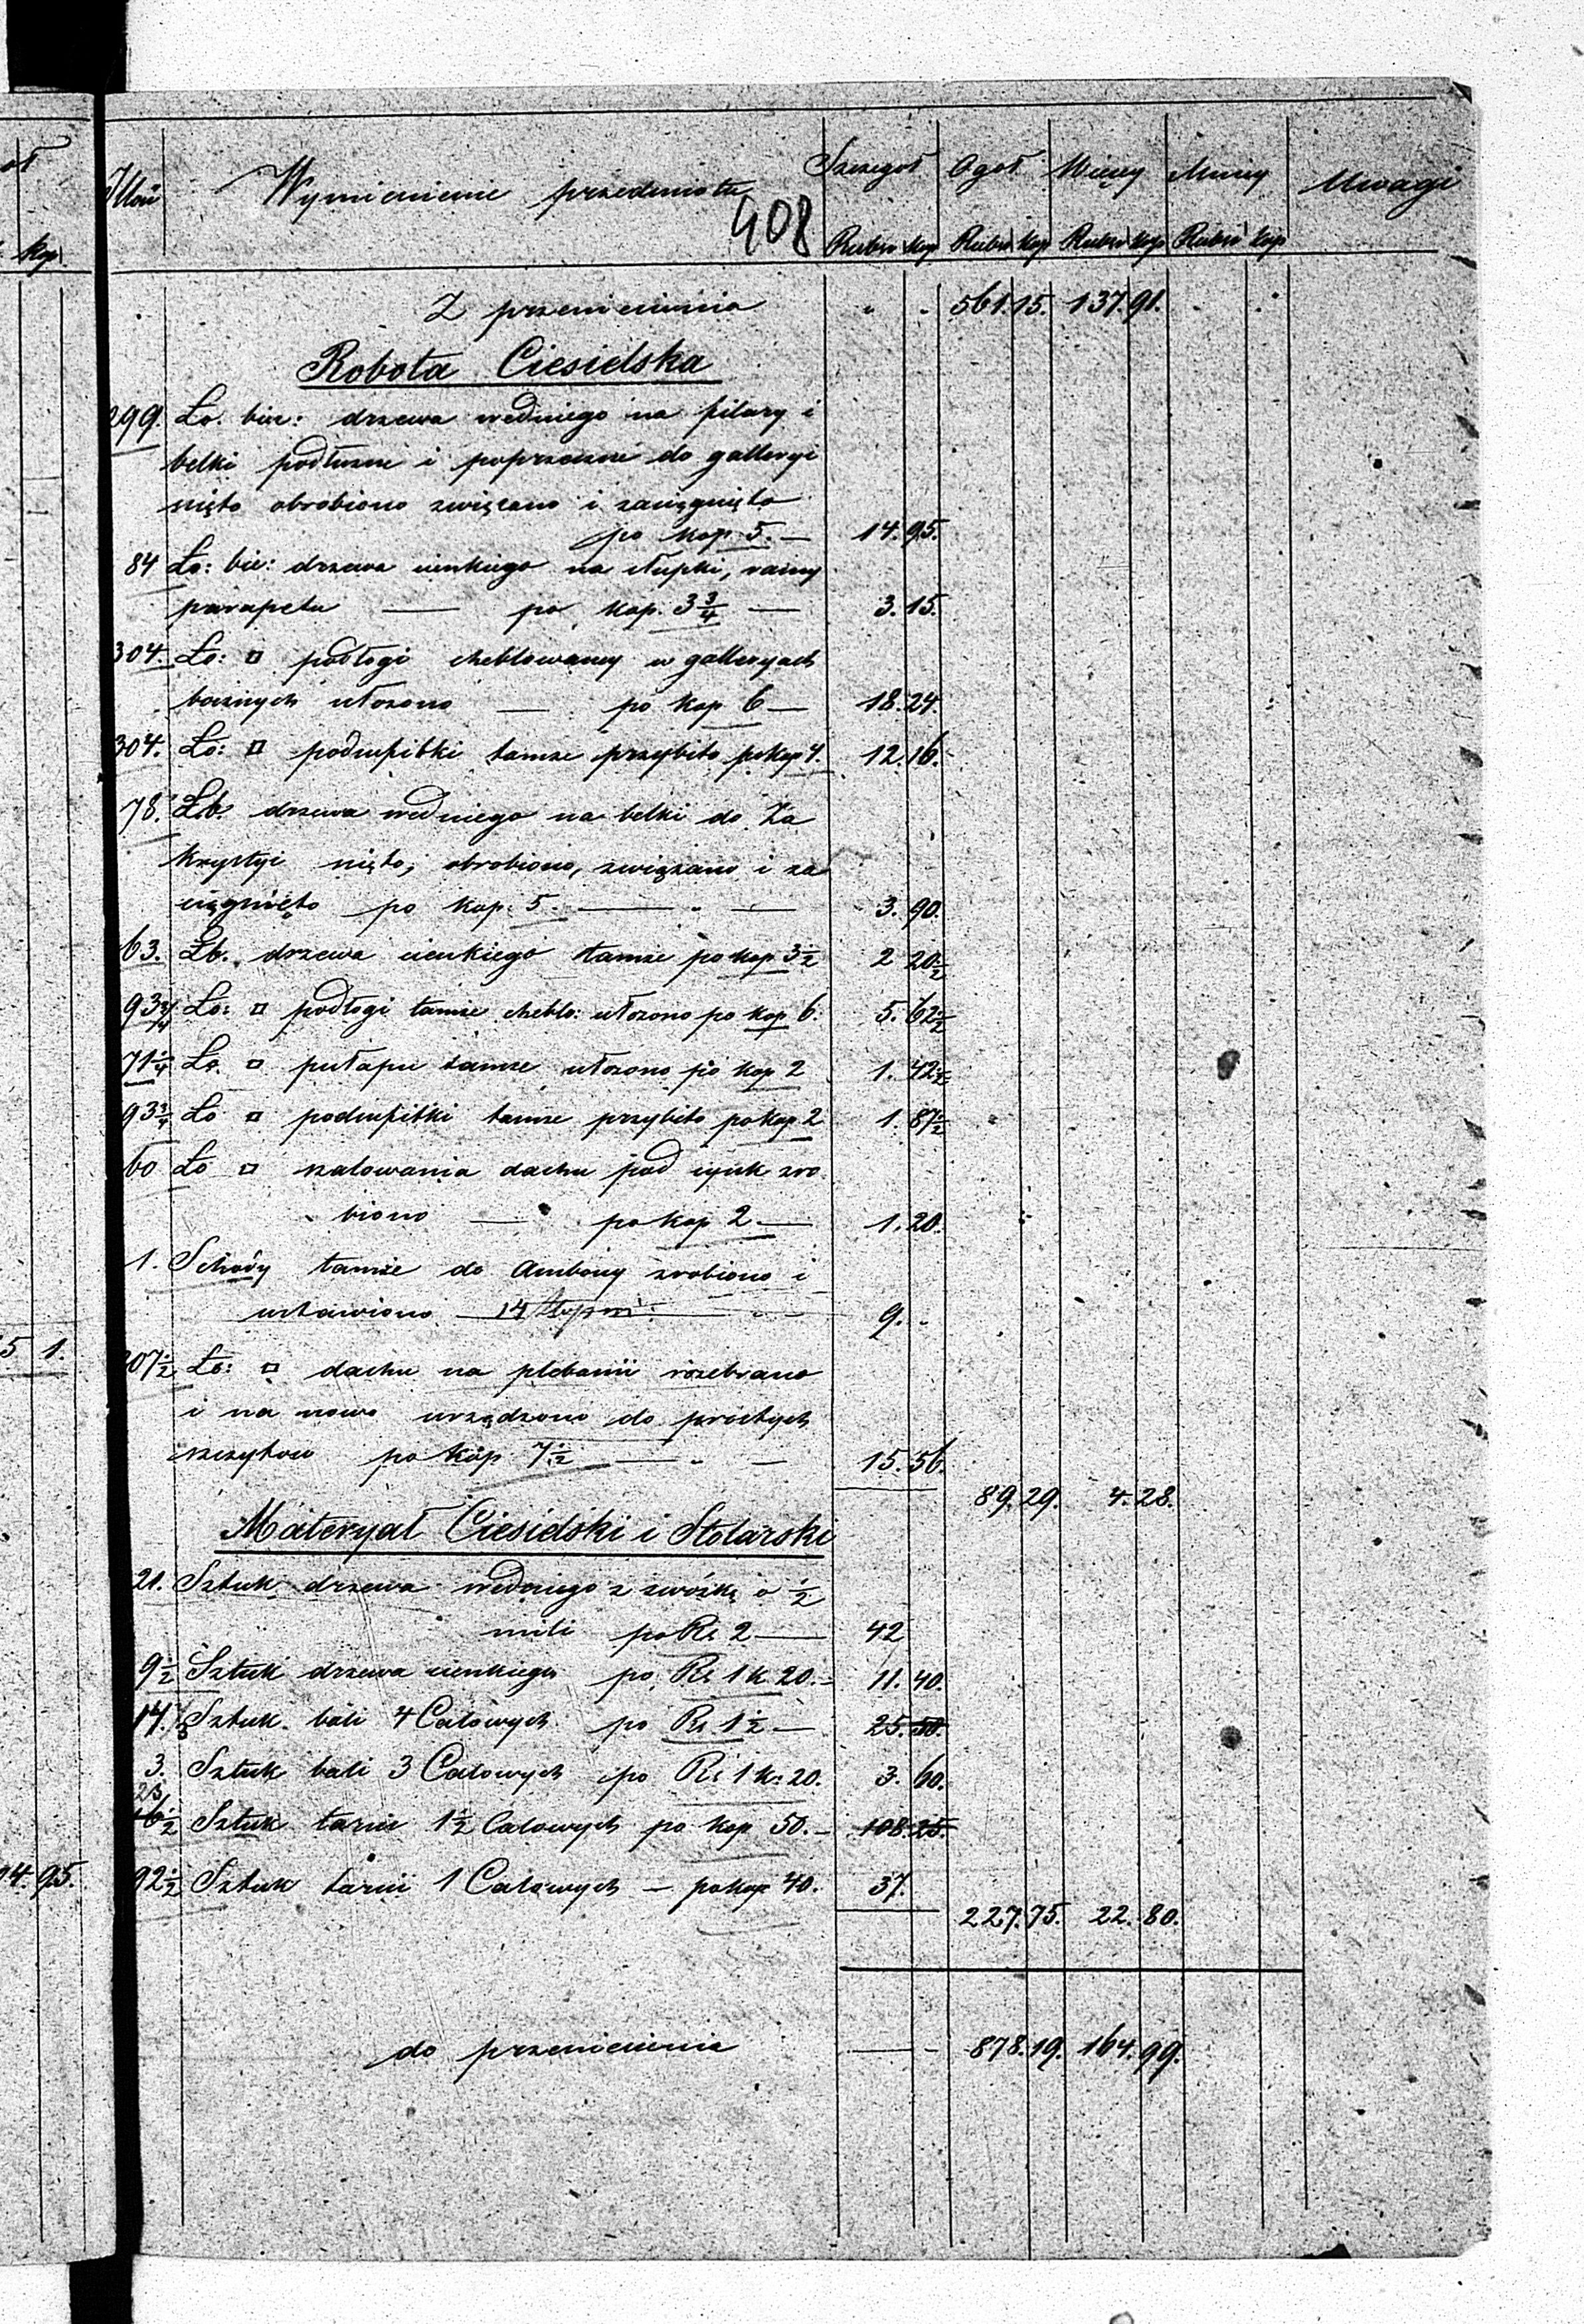 Ilość Wymienienie przedmiotu Szczegół Ogół Więcej Mniej Uwagi
408
Rubsr kop Rubsr kop Rubsr kop Rubsr kop
kop.
Z przeniesienia " - 561. 15. 137. 91. - -
Robota Ciesielska
299. Ło. bie: drzewa średniego na filary i
belki podłużne i poprzeczne do galleryi
cięto obrobiono związano i zaciągnięto
po kop 5. — 14. 95.
84 Ło: bie: drzewa cienkiego na słupki, ramy
parapetu — po kop. 3 3/4 — 3. 15.
304. Ło: □ podłogi cheblowanej w galleryach
bocznych ułożono — po kop 6 — 18. 24.
304. Ło: □ podsufitki tamże przybito po kop 4. 12. 16.
78. Łb. drzewa średniego na belki do Za
krystyi cięto, obrobiono, związano i za
ciągnięto po kop. 5. — " — 3. 90.
63. Łb. drzewa cienkiego tamże po kop 3 1/2 2 20 1/2
93 3/4 Ło: □ podłogi tamże cheblo: ułożono po kop 6. 5. 62 1/2
71 1/4 Ło. □ pułapu tamże ułożono po kop 2 1. 42 1/2
93 3/4 Ło □ podsufitki tamże przybito po kop 2 1. 87 1/2
60 Ło □ szalowania dachu pod cynk zro
biono — po kop 2. — 1. 20.
1. Schody tamże do Ambony zrobiono i
ustawiono — 14 stopni — 9. -
5 1.
207 1/2 Ło: □ dachu na plebanii rozebrano
i na nowo urządzono do prostych
szczytów po kop. 7 1/2 — " — 15. 56.
89. 29. 4. 28.
Materyał Ciesielski i Stolarski
21. Sztuk drzewa średniego z zwózką o 1/2
mili po Rs 2 — 42
9 1/2 Sztuk drzewa cienkiego po Rs 1 k 20. — 11. 40.
17. Sztuk bali 4 Calowych po Rs 1 1/2 — 25. 50.
3. Sztuk bali 3 Calowych po Rs 1 k: 20. 3. 60.
16 1/2 Sztuk tarcic 1 1/2 Calowych po kop 50. — 108. 25.
92 1/2 Sztuk tarcic 1 Calowych — po kop 40. 37.
95.
227. 75. 22. 80.
do przeniesienia — - 878. 19. 164. 99.